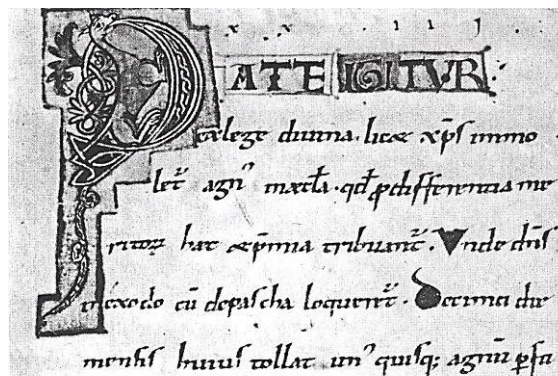 PATE IGITVR:
ex lege diuina. licet xp̄s immo
let᷑ agnꝰ in ecl̄a. qd̄ ꝓ differentia me
ritoꝝ hec & p̄mia tribuant᷑. Vnde dn̄s
in exodo cū de pascha loqueret᷑. Decima die
mensis huius tollat unꝰ quisq; agnū ꝑ fa